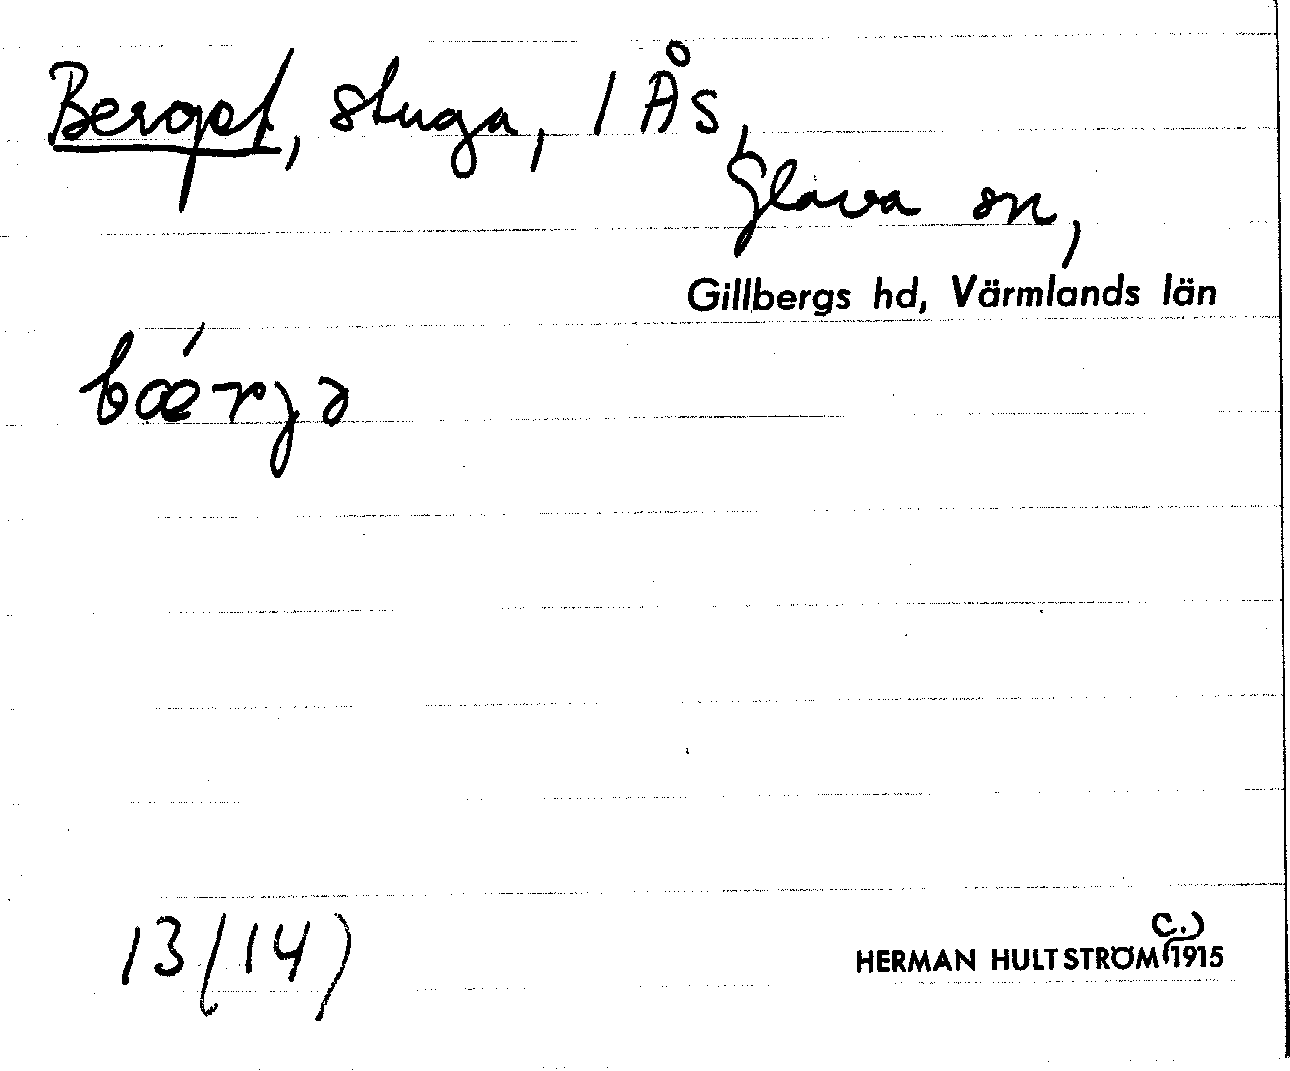 Berget, stuga, 1 Ås,
Glava sn,
Gillbergs hd, Värmlands län
bǽrjə
13(14)
HERMAN HULTSTRÖM (c.) 1915